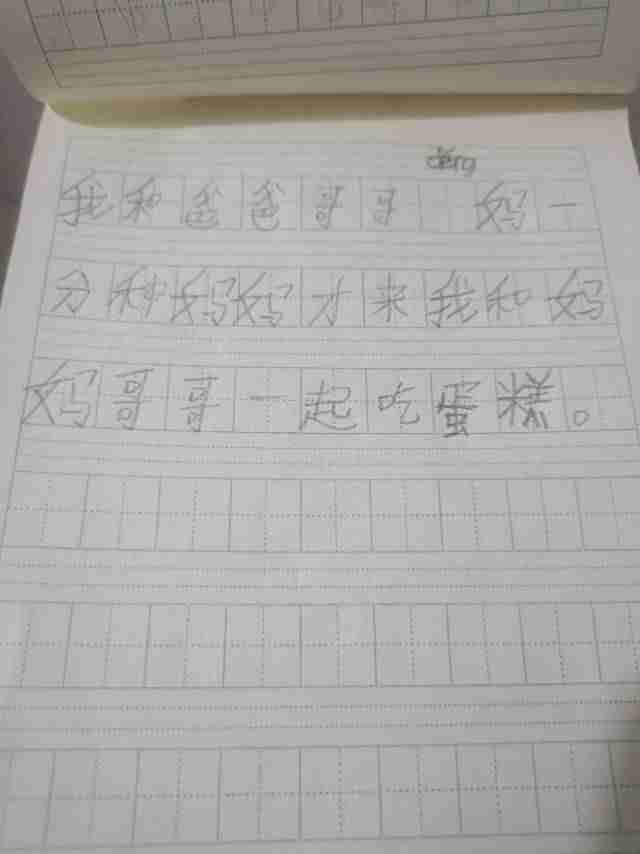 děng
我和爸爸哥哥 妈一
分种妈妈才来我和妈
妈哥哥一起吃蛋糕。